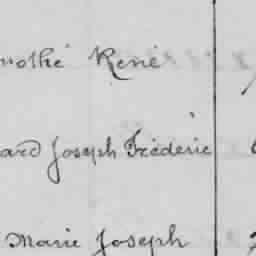 nothé René
ard Joseph Fréderic
Marie Joseph